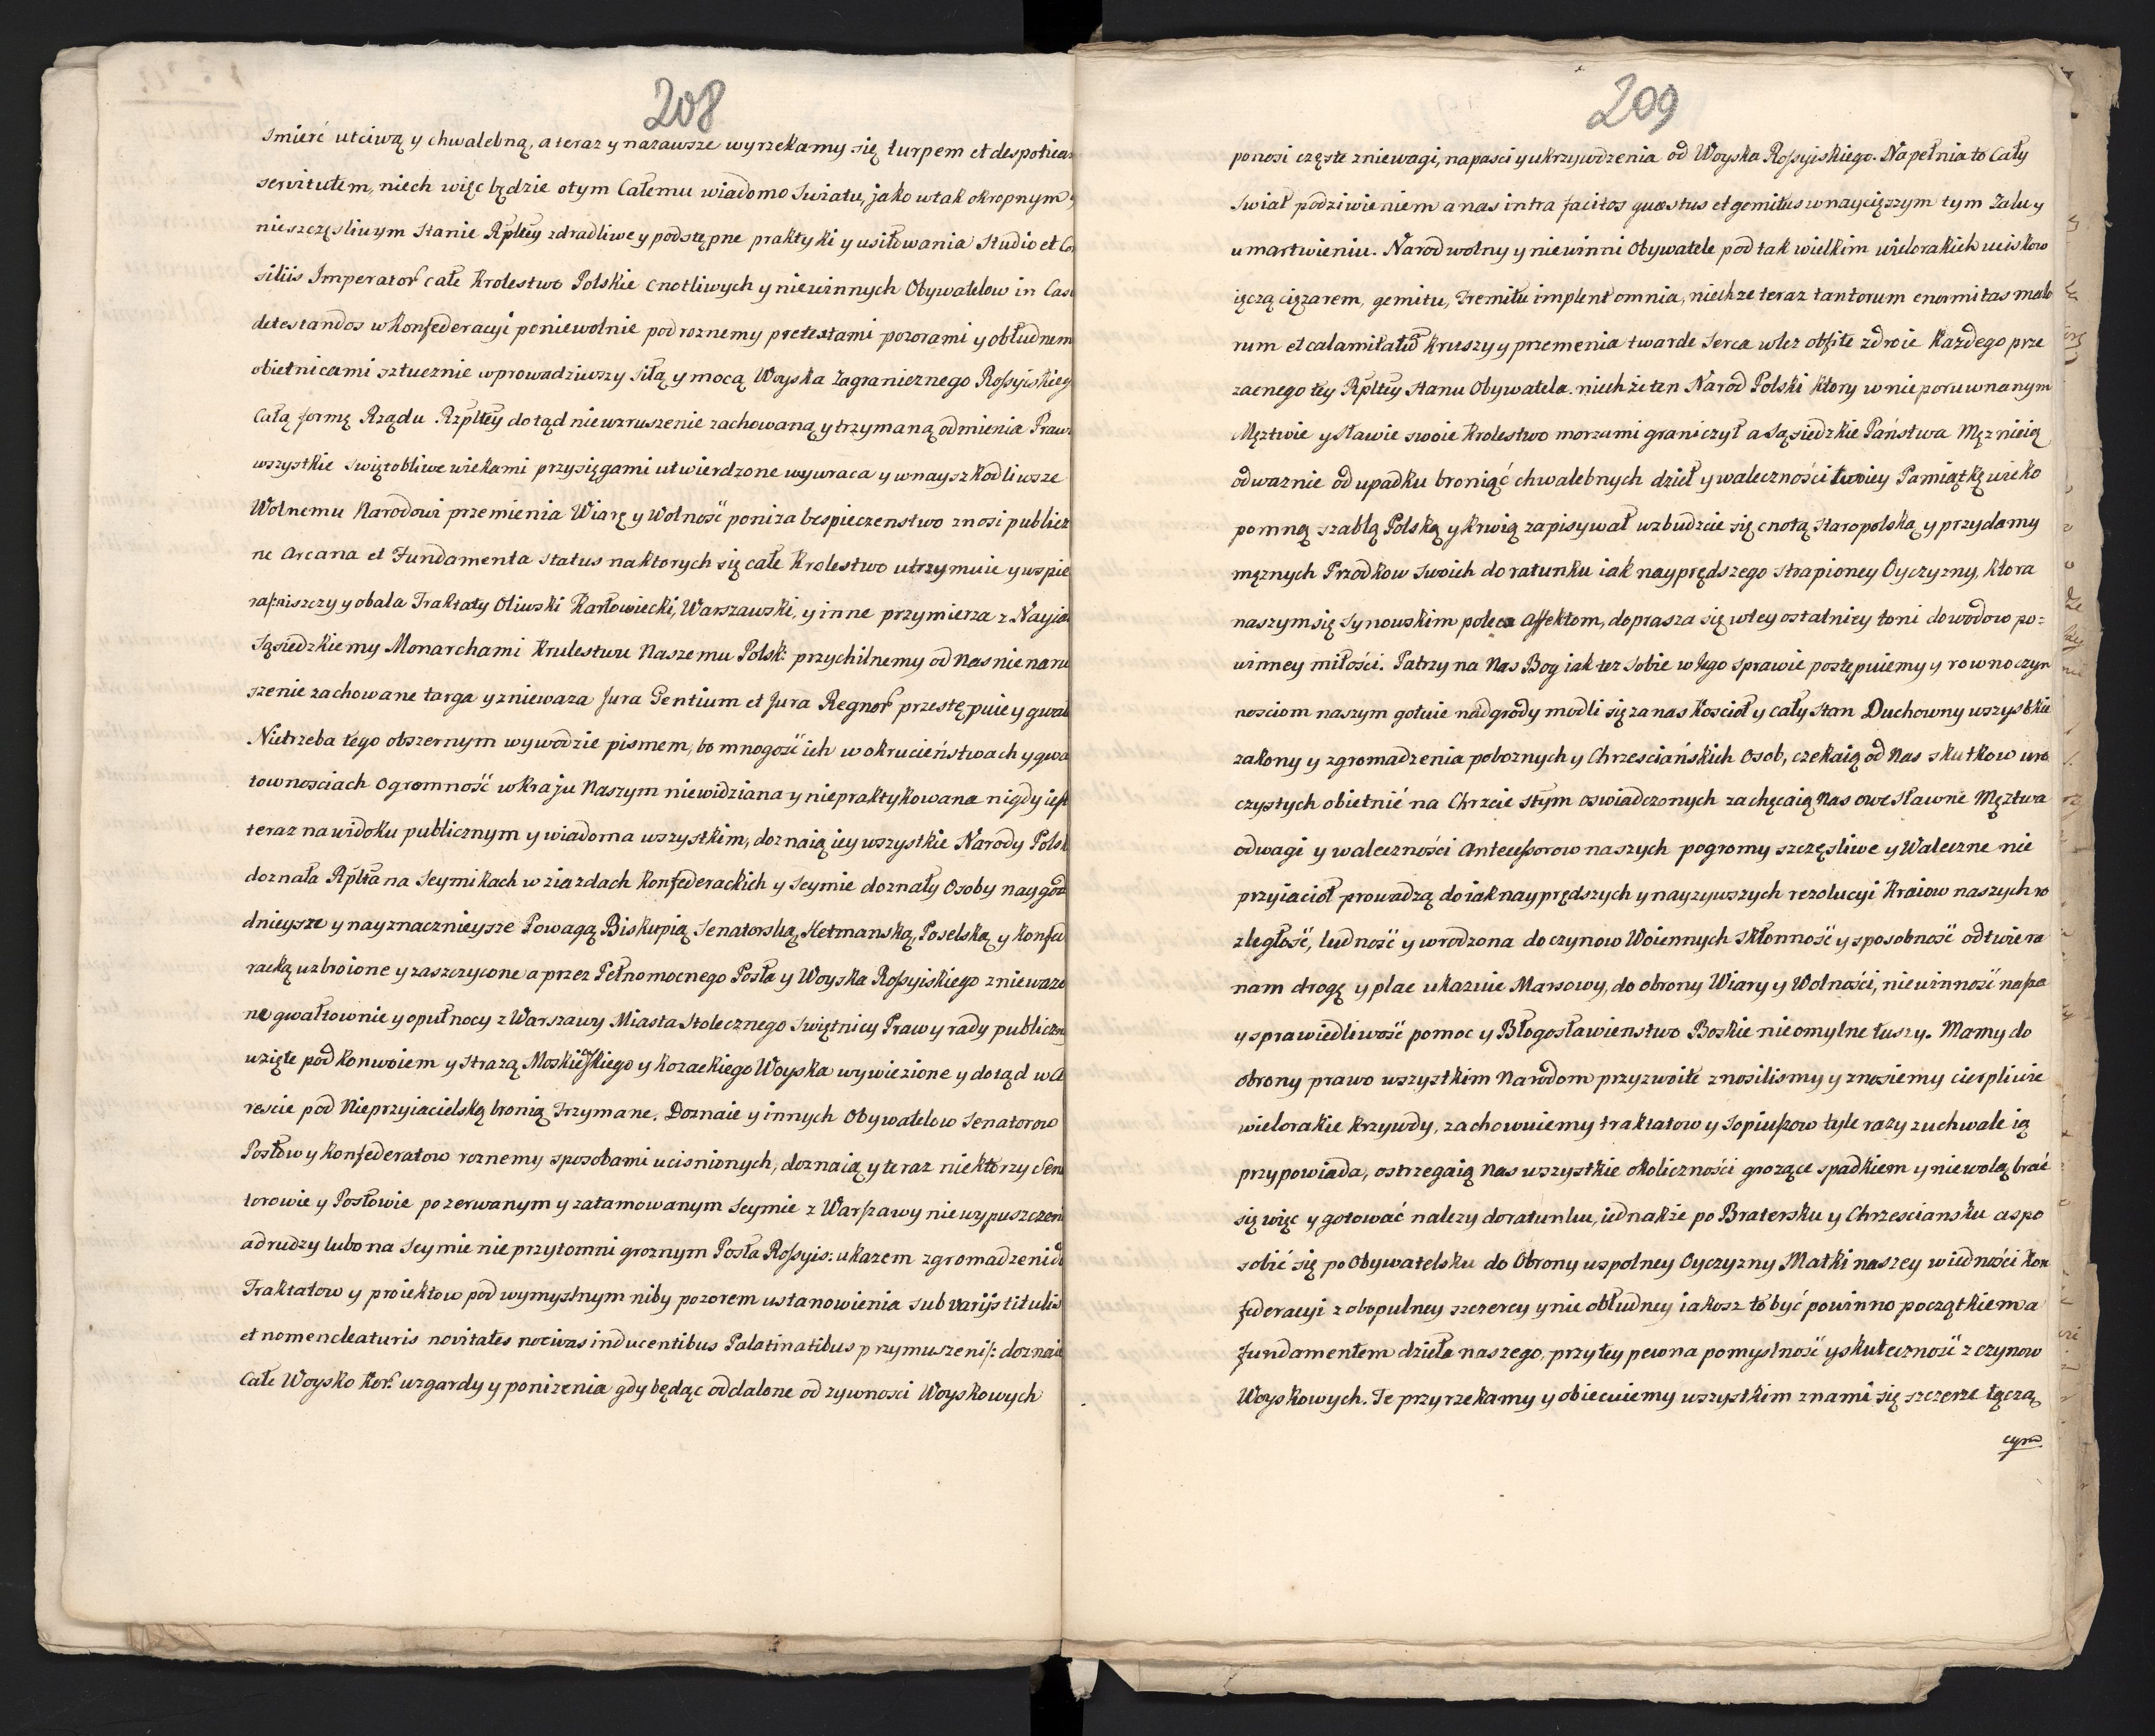 208
Smierć utciwą y chwalebną, a teraz y nazawsze wyrzekamy się turpem et despotica
servitutem, niech więc będzie otym Całemu wiadomo Swiatu, jako wtak okropnym y
nieszczęsliwym Stanie Rpltey zdradliwe y podstępne praktyki y usiłowania Studio et Co
siliis Imperator całe Krolestwo Polskie cnotliwych y niewinnych Obywatelow in Cas
detestandos w Konfederacyi poniewolnie pod roznemy pretextami pozorami y obłudnem
obietnicami sztucznie wprowadziwszy siłą y mocą Woyska Zagranicznego Rossyiskieg
Całą formę Rządu Rzpltey dotąd niewzruszenie zachowaną y trzymaną odmienia Praw
wszystkie swiętobliwe wiekami przysięgami utwierdzone wywraca y w nayszkodliwsze
Wolnemu Narodowi przemienia Wiarę y Wolność poniza bespieczenstwo znosi publicz
ne Arcana et Fundamenta status naktorych się całe Krolestwo utrzymuie y wspie
ra, niszczy y obala Traktaty Oliwski Karłowiecki, Warszawski, y inne przymierza z Nayia
Sąsiedzkiemy Monarchami Krulestwu Naszemu Polsk: przychilnemy od Nas nienaru
szenie zachowane targa y zniewaza Jura Gentium et Jura Regnor przestępuie y gwał
Nietrzeba tego obszernym wywodzie pismem, bo mnogość ich w okrucieństwach y gwa
townosciach Ogromność w kraju Naszym niewidziana y niepraktykowana nigdy iest
teraz na widoku publicznym y wiadoma wszystkim, doznaią iey wszystkie Narody Polsk
doznała Rplta na Seymikach w ziazdach Konfederackich y Seymie doznały Osoby naygod
dnieysze y nayznacznieysze Powagą Biskupią Senatorską, Hetmanską, Poselską y Konfed
racką uzbroione y zaszczycone a przez Pełnomocnego Posła y Woyska Rossyiskiego zniewazo
ne gwałtownie y opułnocy z Warszawy Miasta Stolecznego Swiętnicy Praw y rady publiczn
wzięte pod Konwoiem y Strazą Moskiewskiego y Kozackiego Woyska wywiezione y dotąd w A
rescie pod Nieprzyiacielską bronią Trzymane. Doznaie y innych Obywatelow Senatorow
Posłow y Konfederatow roznemy sposobami ucisnionych, doznaią y teraz niektorzy Sena
torowie y Posłowie po zerwanym y zatamowanym Seymie z Warszawy niewypuszczeni
a drudzy lubo na Seymie nie przytomni groznym Posła Rossyis: ukazem zgromadzeni do
Traktatow y proiektow pod wymyslnym niby pozorem ustanowienia sub varijs titulis
et nomenclaturis novitates nocivas inducentibus Palatinatibus przymuszeni: doznaie
Całe Woysko Kor: wzgardy y ponizenia gdy będąc oddalone od zywnosci Woyskowych
209
ponosi częste zniewagi, napasci y ukrzywdzenia od Woyska Rossyiskiego. Napełnia to Cały
Swiat podziwieniem a nas intra tacitos questus et gemitus w naycięszym tym Zalu y
umartwieniu. Narod wolny y niewinni Obywatele pod tak wielkim wielorakich uciskow
ięczą cięzarem, gemitu, Fremitu implent omnia, niechze teraz tantorum enormitas malo
rum et calamitatu Kruszy y przemenia twarde Serca w łez obfite zdroie Kazdego prze
zacnego tey Rpltey Stanu Obywatela. niech że ten Narod Polski Ktory w nieporuwnanym
Męztwie y Sławie swoie Krolestwo morzami graniczył a Sąsiedzkie Państwa Męznieią
odwaznie od upadku broniąć chwalebnych dzieł y waleczności swoiey Pamiątkę wieko
pomną szablą Polską y krwią zapisywał wzbudzcie się cnotą Staropolską y przydamy
męznych Przodkow Swoich do ratunku iak nayprędszego strapioney Oyczyzny, Ktora
naszym się Synowskim poleca Affektom, doprasza się w tey ostatniey toni dowodow po=
winney miłości. Patrzy na Nas Bog iak tez sobie w Jego sprawie postępuiemy y rowno czyn
nosciom naszym gotuie nadgrody modli się za nas Koscioł y cały Stan Duchowny wszystkie
zakony y zgromadzenia poboznych y Chrzesciańskich Osob, czekaią od Nas skutkow uro
czystych obietnić na Chrzcie Stym oswiadczonych zachęcaią Nas owe Sławne Męztwa
odwagi y waleczności Antecessorow naszych pogromy szczęsliwe y Waleczne nie
przyiacioł prowadzą do iak nayprędszych y nayzywszych rezolucyi Kraiow naszych ro
zległość, ludność y wrodzona do czynow Woiennych Skłonność y sposobność odtwiera
nam drogę y plac ukazuie Marsowy, do obrony Wiary y Wolności, niewinność nasza
y sprawiedliwość pomoc y Błogosławienstwo Boskie nieomylne tuszy. Mamy do
obrony prawo wszystkim Narodom przyzwoite znosilismy y znosiemy cierpliwie
wielorakie krzywdy, zachowuiemy traktatow y Sopiuszow tyle razy zuchwale ią
przypowiada, ostrzegaią nas wszystkie okoliczności grozące spadkiem y niewolą brać
się więc y gotować nalezy do ratunku, iednakże po Bratersku y Chrzesciansku a spo
sobić się po Obywatelsku do Obrony wspolney Oyczyzny Matki naszey w iedności Kon
federacyi z obopulney szczercy y nie obłudney iakosz to być powinno początkiem a
fundamentem dzieła naszego, przy tey pewna pomyslność y skuteczność z czynow
Woyskowych. Te przyrzekamy y obiecuiemy wszystkim z nami się szczerze łączą
cym.